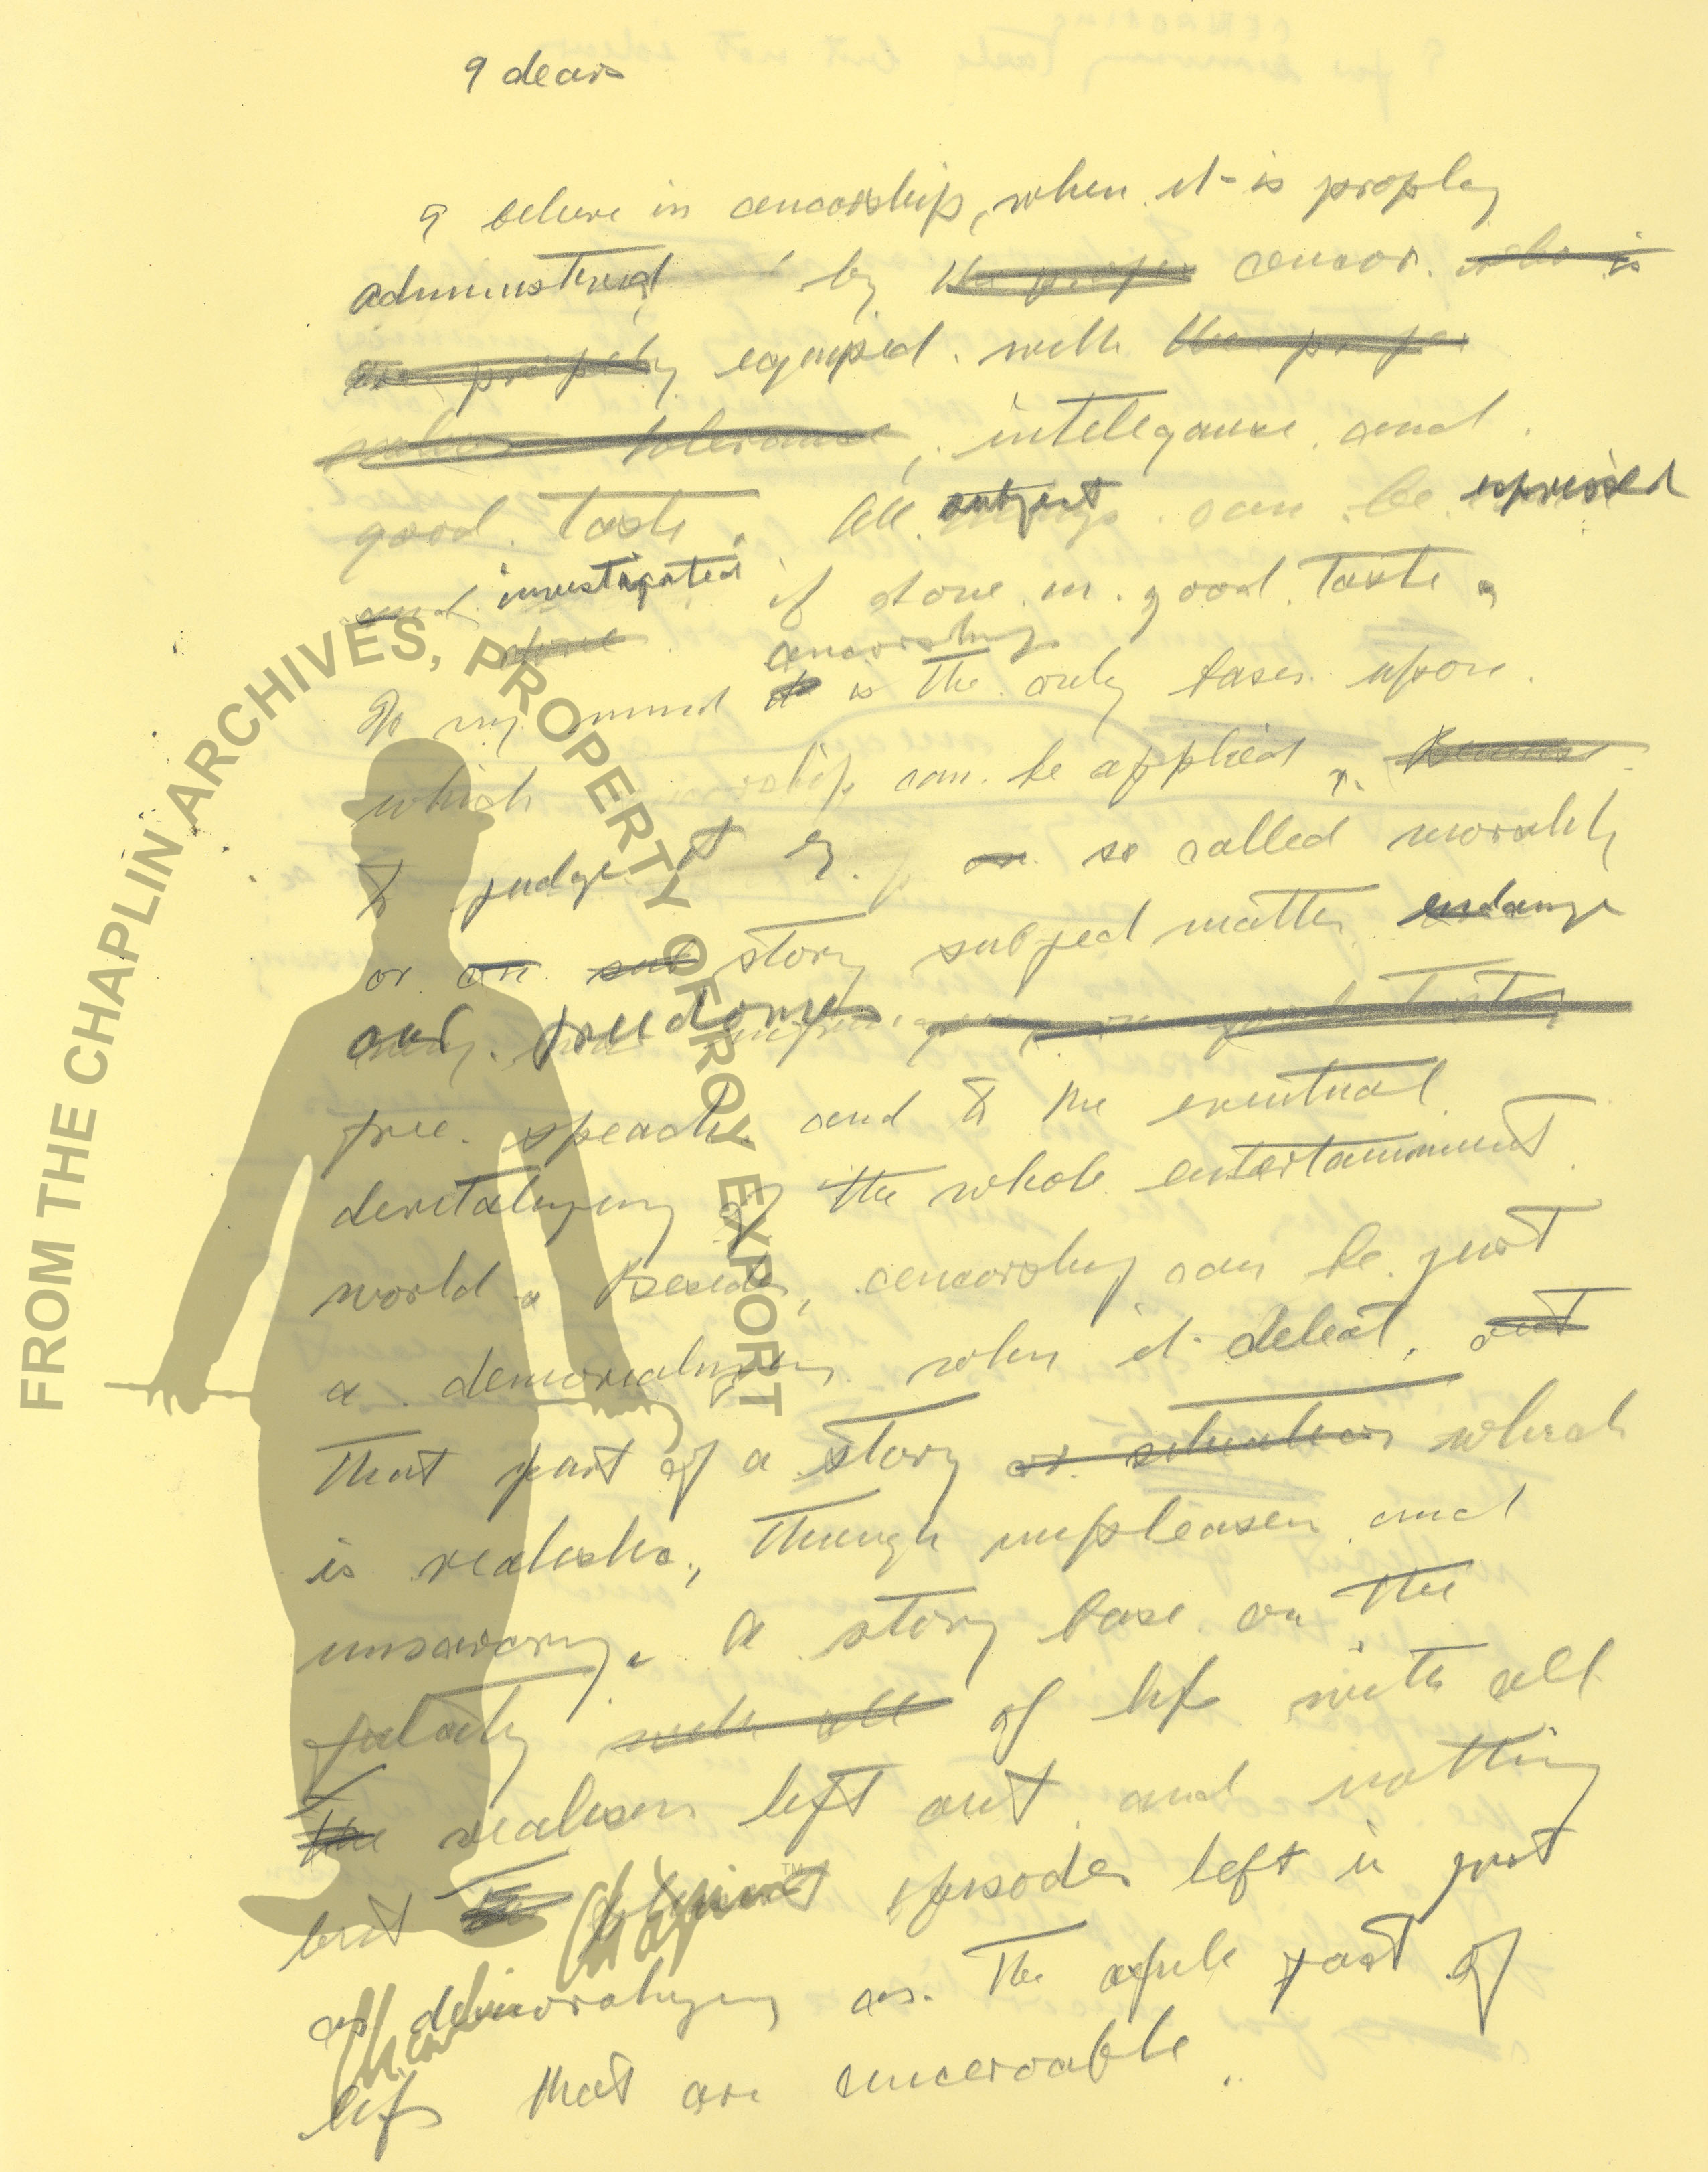 9 dear
I beleve in censorship, when it is proply
administered by the proper censor. who is
equipied with the proper
tolerance, intelegance and
good taste. All subject can be expressed
and investigated if done in good taste.
censorship
To my mind it is the only bases upon
which censorship can be applied
To judge it by so called morality
or on sub story subject matter endange
our freedome
free speach and to the eventual
devitalizing of the whole entertainment
world. Beside, censorship can be just
a demoralizing when it deleat, out
That part of a story or situation which
is realistic, though unpleasen and
unsavory. A story base on the
with all of life with all
the realism left out and nothing
but the episodes left is just
as demoralizing as the part of
life that are
FROM THE CHAPLIN ARCHIVES, PROPERTY OF ROY EXPORT
Charlie Chaplin™